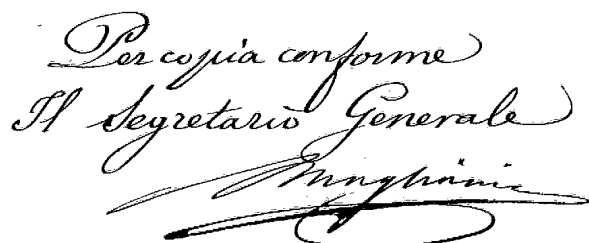 Per copia conforme
Il Segretario Generale